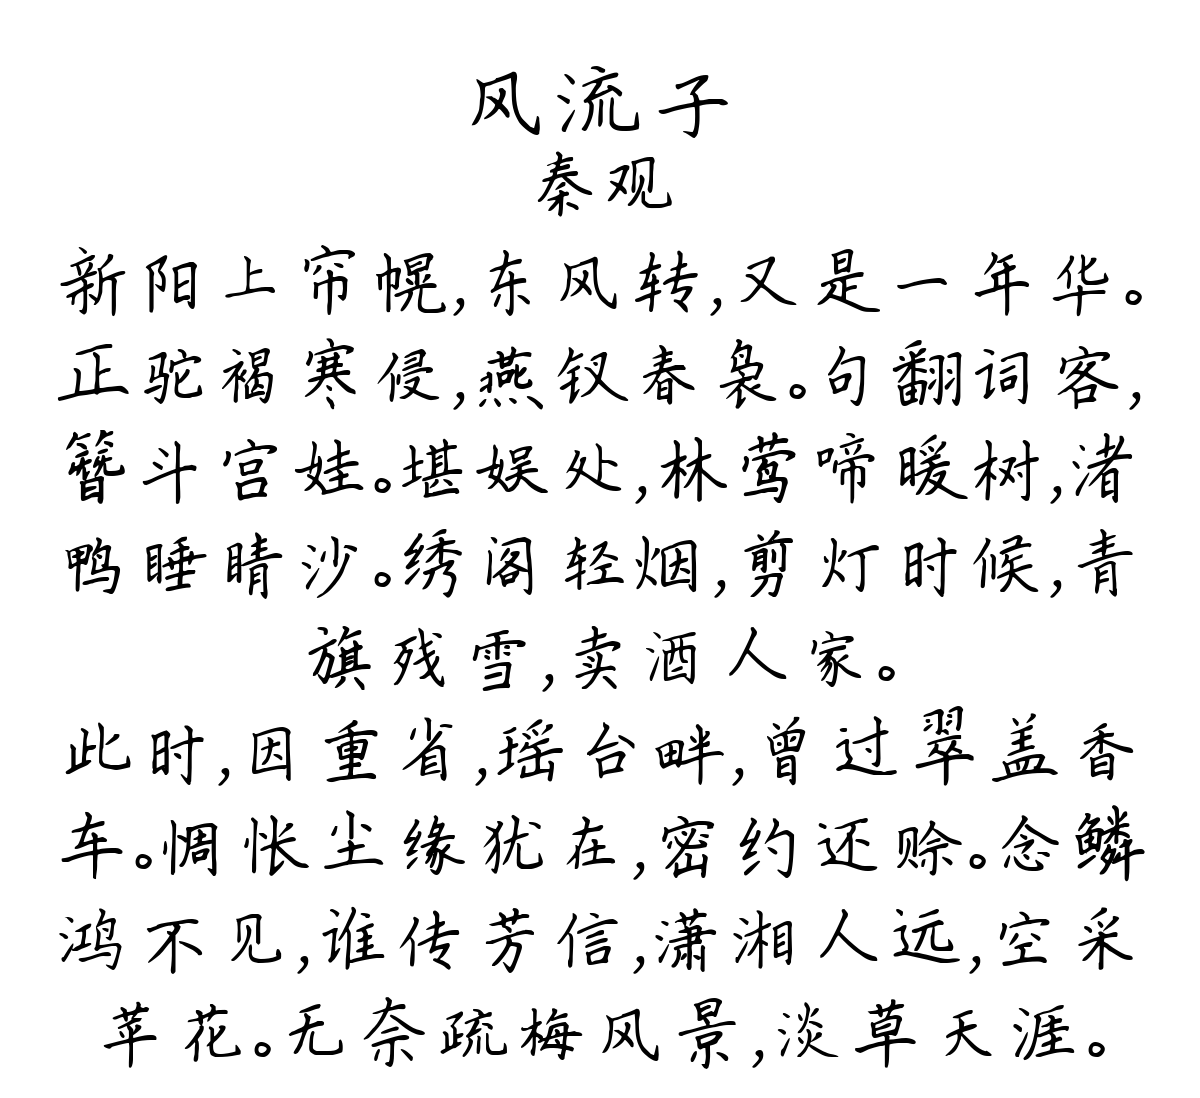 风流子
秦观
新阳上帘幌,东风转,又是一年华。
正驼褐寒侵,燕钗春袅。句翻词客,
簪斗宫娃。堪娱处,林莺啼暖树,渚
鸭睡晴沙。绣阁轻烟,剪灯时候,青
旗残雪,卖酒人家。
此时,因重省,瑶台畔,曾过翠盖香
车。惆怅尘缘犹在,密约还赊。念鳞
鸿不见,谁传芳信,潇湘人远,空采
苹花。无奈疏梅风景,淡草天涯。